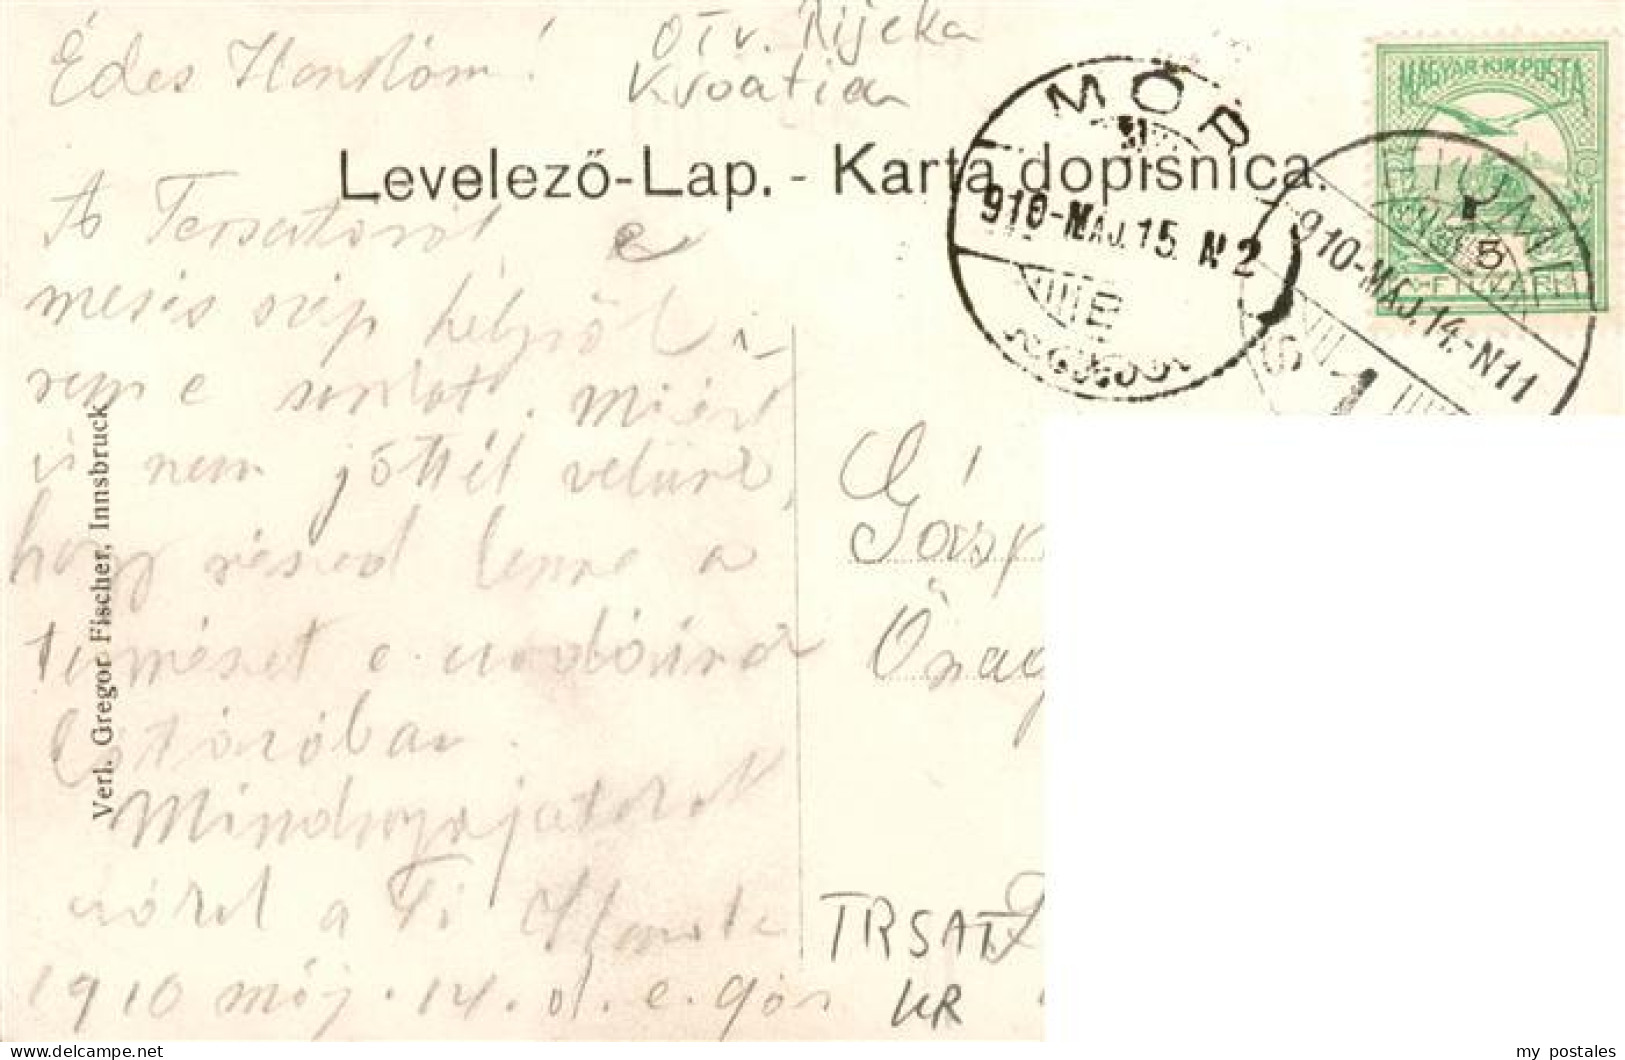 Édes Hankám!
OTV. Rijeka
Kroatia
Levelező-Lap. - Karta dopisnica.
MÓR
910-MÁJ.15. N2
MAGYAR KIR. POSTA
FIUME
5
910-MÁJ.14.-N11
A Tersatoról e
mesés szép helyről i-
rom e sorokat. Miért
is nem jöttél velünk,
hogy részed lenne a
természet e csodásnál
Mindnyájatokat
csókol a Ti
1910 máj. 14. d. e.
Gásp
Önag
TRSAT
KR
Verl. Gregor Fischer, Innsbruck
my postales